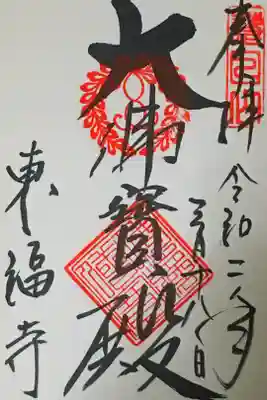 奉拝
令和二年
三月十八日
大佛寳殿
東福寺